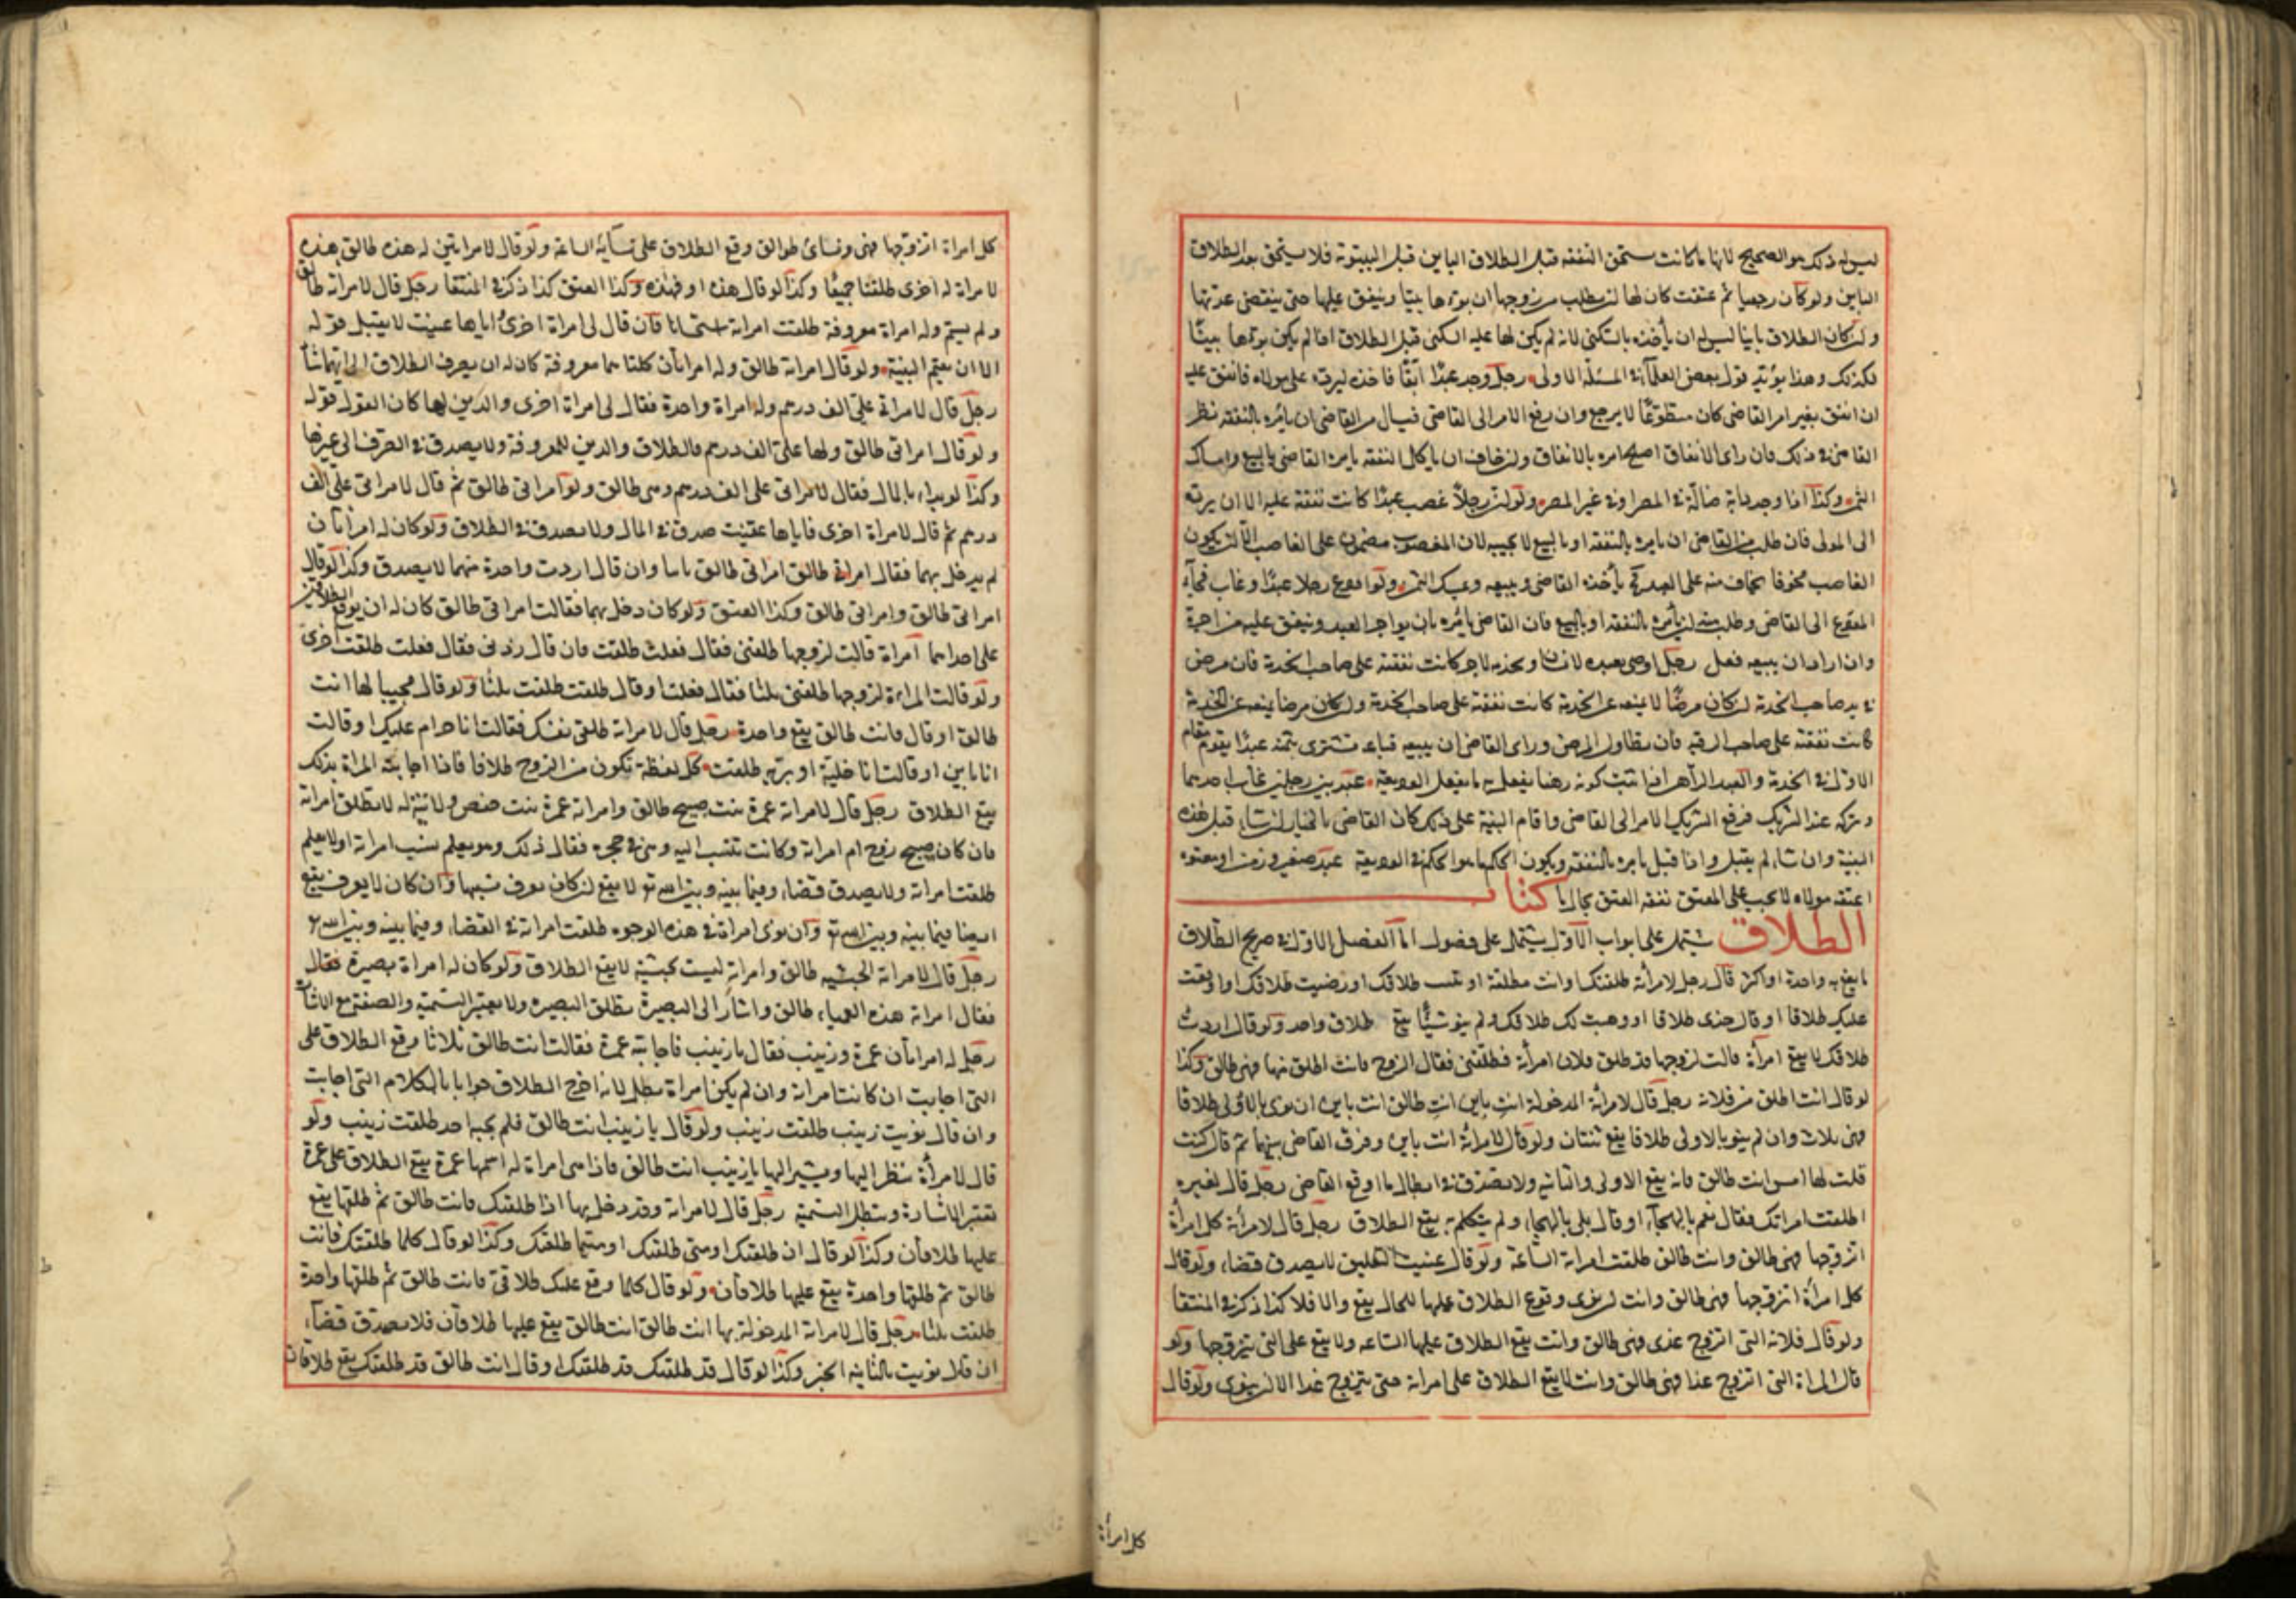 ليس له ذلك هو الصحيح لانها ما كانت تستحق النفقه قبل الطلاق الباين قبل البيتوتة فلا يستحق بعد الطلاق
الباين ولو كان رجعيا ثم عتقت كان لها ان يطلب من زوجها ان بوءها بيتا وينفق عليها حتى ينقضى عدتها
وان كان الطلاق باينا ليس له ان يأخذه بالسكنى لانه لم يكن لها عليه السكنى قبل الطلاق اذا لم يكن بوءها بيتا
فكذلك وهذا يؤيد قول بعض العلمآ فى المسئلة الاولى رجل وجد عبدًا آبقًا فاخذه ليرده على مولاه فانفق عليه
ان انفق بغير امر القاضى كان متطوعًا لا يرجع وان رفع الامر الى القاضى فسال من القاضى ان يأمره بالنفقه نظر
القاضى فى ذلك فان راى الانفاق اصلح امره بالانفاق وان خاف ان ياكل النفقه يامره القاضى بالبيع وامساك
الثمن وكذا اذا وجد دابة ضالة فى المصر او فى غير المصر ولو ان رجلاً غصب عبدًا كانت نفقة عليه الى ان يرده
الى المولى فان طلب من القاضى ان يامره بالنفقه او بالبيع لا يجيبه لان المغصوب مضمون على الغاصب الا ان يكون
الغاصب مخوفا يخاف منه على العبد يأخذه القاضى ويبيعه ويمسك الثمن ولو اودع رجلا عبدًا وغاب فجآء
المودع الى القاضى وطلب منه ان يأمره بالنفقه او بالبيع فان القاضى يأمره بان يواجر العبد وينفق عليه من اجرة
وان اراد ان يبيعه فعل رجل اوصى بعبده لانسان وبخدمته لاخر كانت نفقته على صاحب الخدمة فان مرض
فى يد صاحب الخدمة ان كان مرضًا لا يمنعه عن الخدمة كانت نفقته على صاحب الخدمة وان كان مرضا يمنعه عن الخدمة
كانت نفقته على صاحب الرقبه فان تطاول المرض وراى القاضى ان يبيعه فباعه تشترى بثمنه عبدًا يقوم مقام
الاول فى الخدمة والعبد الراهن اذا ثبت كونه رهنا يفعل به ما يفعل الوديعة عبد بين رجلين غاب احدهما
وتركه عند الشريك فرفع الشريك الامر الى القاضى واقام البينة على ذلك كان القاضى بالخيار ان شاء قبل هذه
البينة وان شاء لم يقبل واذا قبل يامره بالنفقه ويكون الحكم ما هو الحكم فى الوديعة عبد صغير او زمن او معتوه
اعتقه مولاه لا يجب على المعتق نفقة العتق بحال كتاب
الطلاق يشتمل على ابواب الاول يشتمل على فصول اما الفصل الاول فى صريح الطلاق
ما يقع به واحدة او اكثر قال رجل لامرأته طلقتك او انت مطلقة او شئت طلاقك او رضيت طلاقك او اوقعت
عليك طلاقا او قال خذى طلاقا او وهبت لك طلاقك ولم ينو شيئًا يقع طلاق واحد ولو قال اردت
طلاقك لا يقع امرأة قالت لزوجها قد طلق فلان امرأته فطلقنى فقال الزوج فانت اطلق منها فهى طالق وكذا
لو قال انت اطلق من فلانة رجل قال لامرأته المدخولة انت باين انت طالق انت باين ان نوى بالاولى طلاقا
فهى ثلاث وان لم ينو بالاولى طلاقا يقع ثنتان ولو قال لامرأته انت باين وفرق القاضى بينهما ثم قال كنت
قلت لها امس انت طالق فانه يقع الاولى والثانيه ولا يصدق فى ابطال ما اوقع القاضى رجل قال لغيره
اطلقت امراتك فقال نعم بالهجآء او قال بلى بالهجاء ولم يتكلم به يقع الطلاق رجل قال لامرأته كل امرأة
اتزوجها فهى طالق وانت طالق طلقت امراته الساعة ولو قال عنيت التعليق لا يصدق قضاء ولو قال
كل امرأة اتزوجها فهى طالق وانت ان نوى وقوع الطلاق عليها للحال يقع والا فلا كذا ذكر فى المنتقا
ولو قال فلانة التى اتزوج غدى فهى طالق وانت يقع الطلاق عليها الساعه ولا يقع على التى يتزوجها ولو
قال المراة التى اتزوج غدا فهى طالق وانت لا يقع الطلاق على امراته حتى يتزوج غدا الا ان ينوى ولو قال
كل امرأة
كل امراة اتزوجها فهى ونسائ طوالق وقع الطلاق على نسآئه الساعة ولو قال لامراتين له هذه طالق هذه
لامراة له اخرى طلقتا جميعًا وكذا لو قال هذه او فهذه وكذا العتق كذا ذكر فى المنتقا رجل قال لامراته طالق
ولم يسم وله امراة معروفة طلقت امراته استحسانا فان قال لى امراة اخرى اياها عنيت لا يقبل قوله
الا ان يقيم البينة ولو قال امراته طالق وله امراتان كلتاهما معروفة كان له ان يصرف الطلاق الى ايتهما شآ
رجل قال لامراتى على الف درهم وله امراة واحدة فقال لى امراة اخرى والدين لها كان القول قوله
ولو قال امراتى طالق ولها على الف درهم فالطلاق والدين للمعروفة ولا يصدق فى الصرف الى غيرها
وكذا لو بداء بالمال فقال لامراتى على الف درهم وهى طالق ولو امراتى طالق ثم قال لامراتى على الف
درهم ثم قال لامراة اخرى فاياها عنيت صدق فى المال ولا يصدق فى الطلاق ولو كان له امراتان
لم يدخل بهما فقال امراتى طالق امراتى طالق بانتا وان قال اردت واحدة منهما لا يصدق وكذا لو قال
امراتى طالق وامراتى طالق وكذا العتق ولو كان دخل بهما فقالت امراتى طالق كان له ان يوقع الطلاقين
على احداهما امراة قالت لزوجها طلقنى فقال فعلت طلقت فان قال زدنى فقال فعلت طلقت اخرى
ولو قالت المراءة لزوجها طلقنى ثلثا فقال فعلت او قال طلقت طلقت ثلثا ولو قال مجيبا لها انت
طالق او قال فانت طالق يقع واحدة رجل قال لامراته طلقى نفسك فقالت انا حرام عليك او قالت
انا باين او قالت انا خلية او برية طلقت كل لفظة تكون من الزوج طلاقا فاذا اجابته المراة بذلك
يقع الطلاق رجل قال لامراته عمرة بنت صبيح طالق وامراته عمرة بنت حفص ولا نية له لا تطلق امراته
فان كان صبيح زوج ام امراته وكانت تنتسب اليه وهى فى حجره فقال ذلك وهو يعلم نسب امراته او لا يعلم
طلقت امراته ولا يصدق قضاء وفيما بينه وبين الله تع لا يقع ان كان يعرف نسبها وان كان لا يعرف يقع
ايضا فيما بينه وبين الله تع وان نوى امراته فى هذه الوجوه طلقت امراته فى القضاء وفيما بينه وبين الله تع
رجل قال لامراته الحبشيه طالق وامراته ليست بحبشية لا يقع الطلاق ولو كان له امراة بصيرة فقال
فقال امراته هذه العمياء طالق واشار الى البصيرة تطلق البصيره ولا يعتبر التسمية والصفة مع الاشارة
رجل له امراتان عمرة وزينب فقال يا زينب فاجابته عمرة فقالت انت طالق ثلاثا وقع الطلاق على
التى اجابت ان كانت امراته وان لم يكن امراة بطل لانه اخرج الطلاق جوابا بالكلام التى اجابت
وان قال نويت زينب طلقت زينب ولو قال يا زينب انت طالق فلم يجبه احد طلقت زينب ولو
قال لامرأة ينظر اليها ويشير اليها يا زينب انت طالق فاذا هى امراة له اسمها عمرة يقع الطلاق على عمرة
تعتبر الاشارة وتبطل التسمية رجل قال لامراته وقد دخل بها اذا طلقتك فانت طالق ثم طلقها يقع
عليها طلاقان وكذا لو قال ان طلقتك او متى طلقتك او متيما طلقتك وكذا لو قال كلما طلقتك فانت
طالق ثم طلقها واحدة يقع عليها طلاقان ولو قال كلما وقع عليك طلاقى فانت طالق ثم طلقها واحدة
طلقت ثلثا رجل قال لامراته المدخولة بها انت طالق انت طالق يقع عليها طلاقان فلا يصدق قضآء
ان قال نويت بالثانيه الخبر وكذا لو قال قد طلقتك قد طلقتك او قال انت طالق قد طلقتك يقع طلاقان